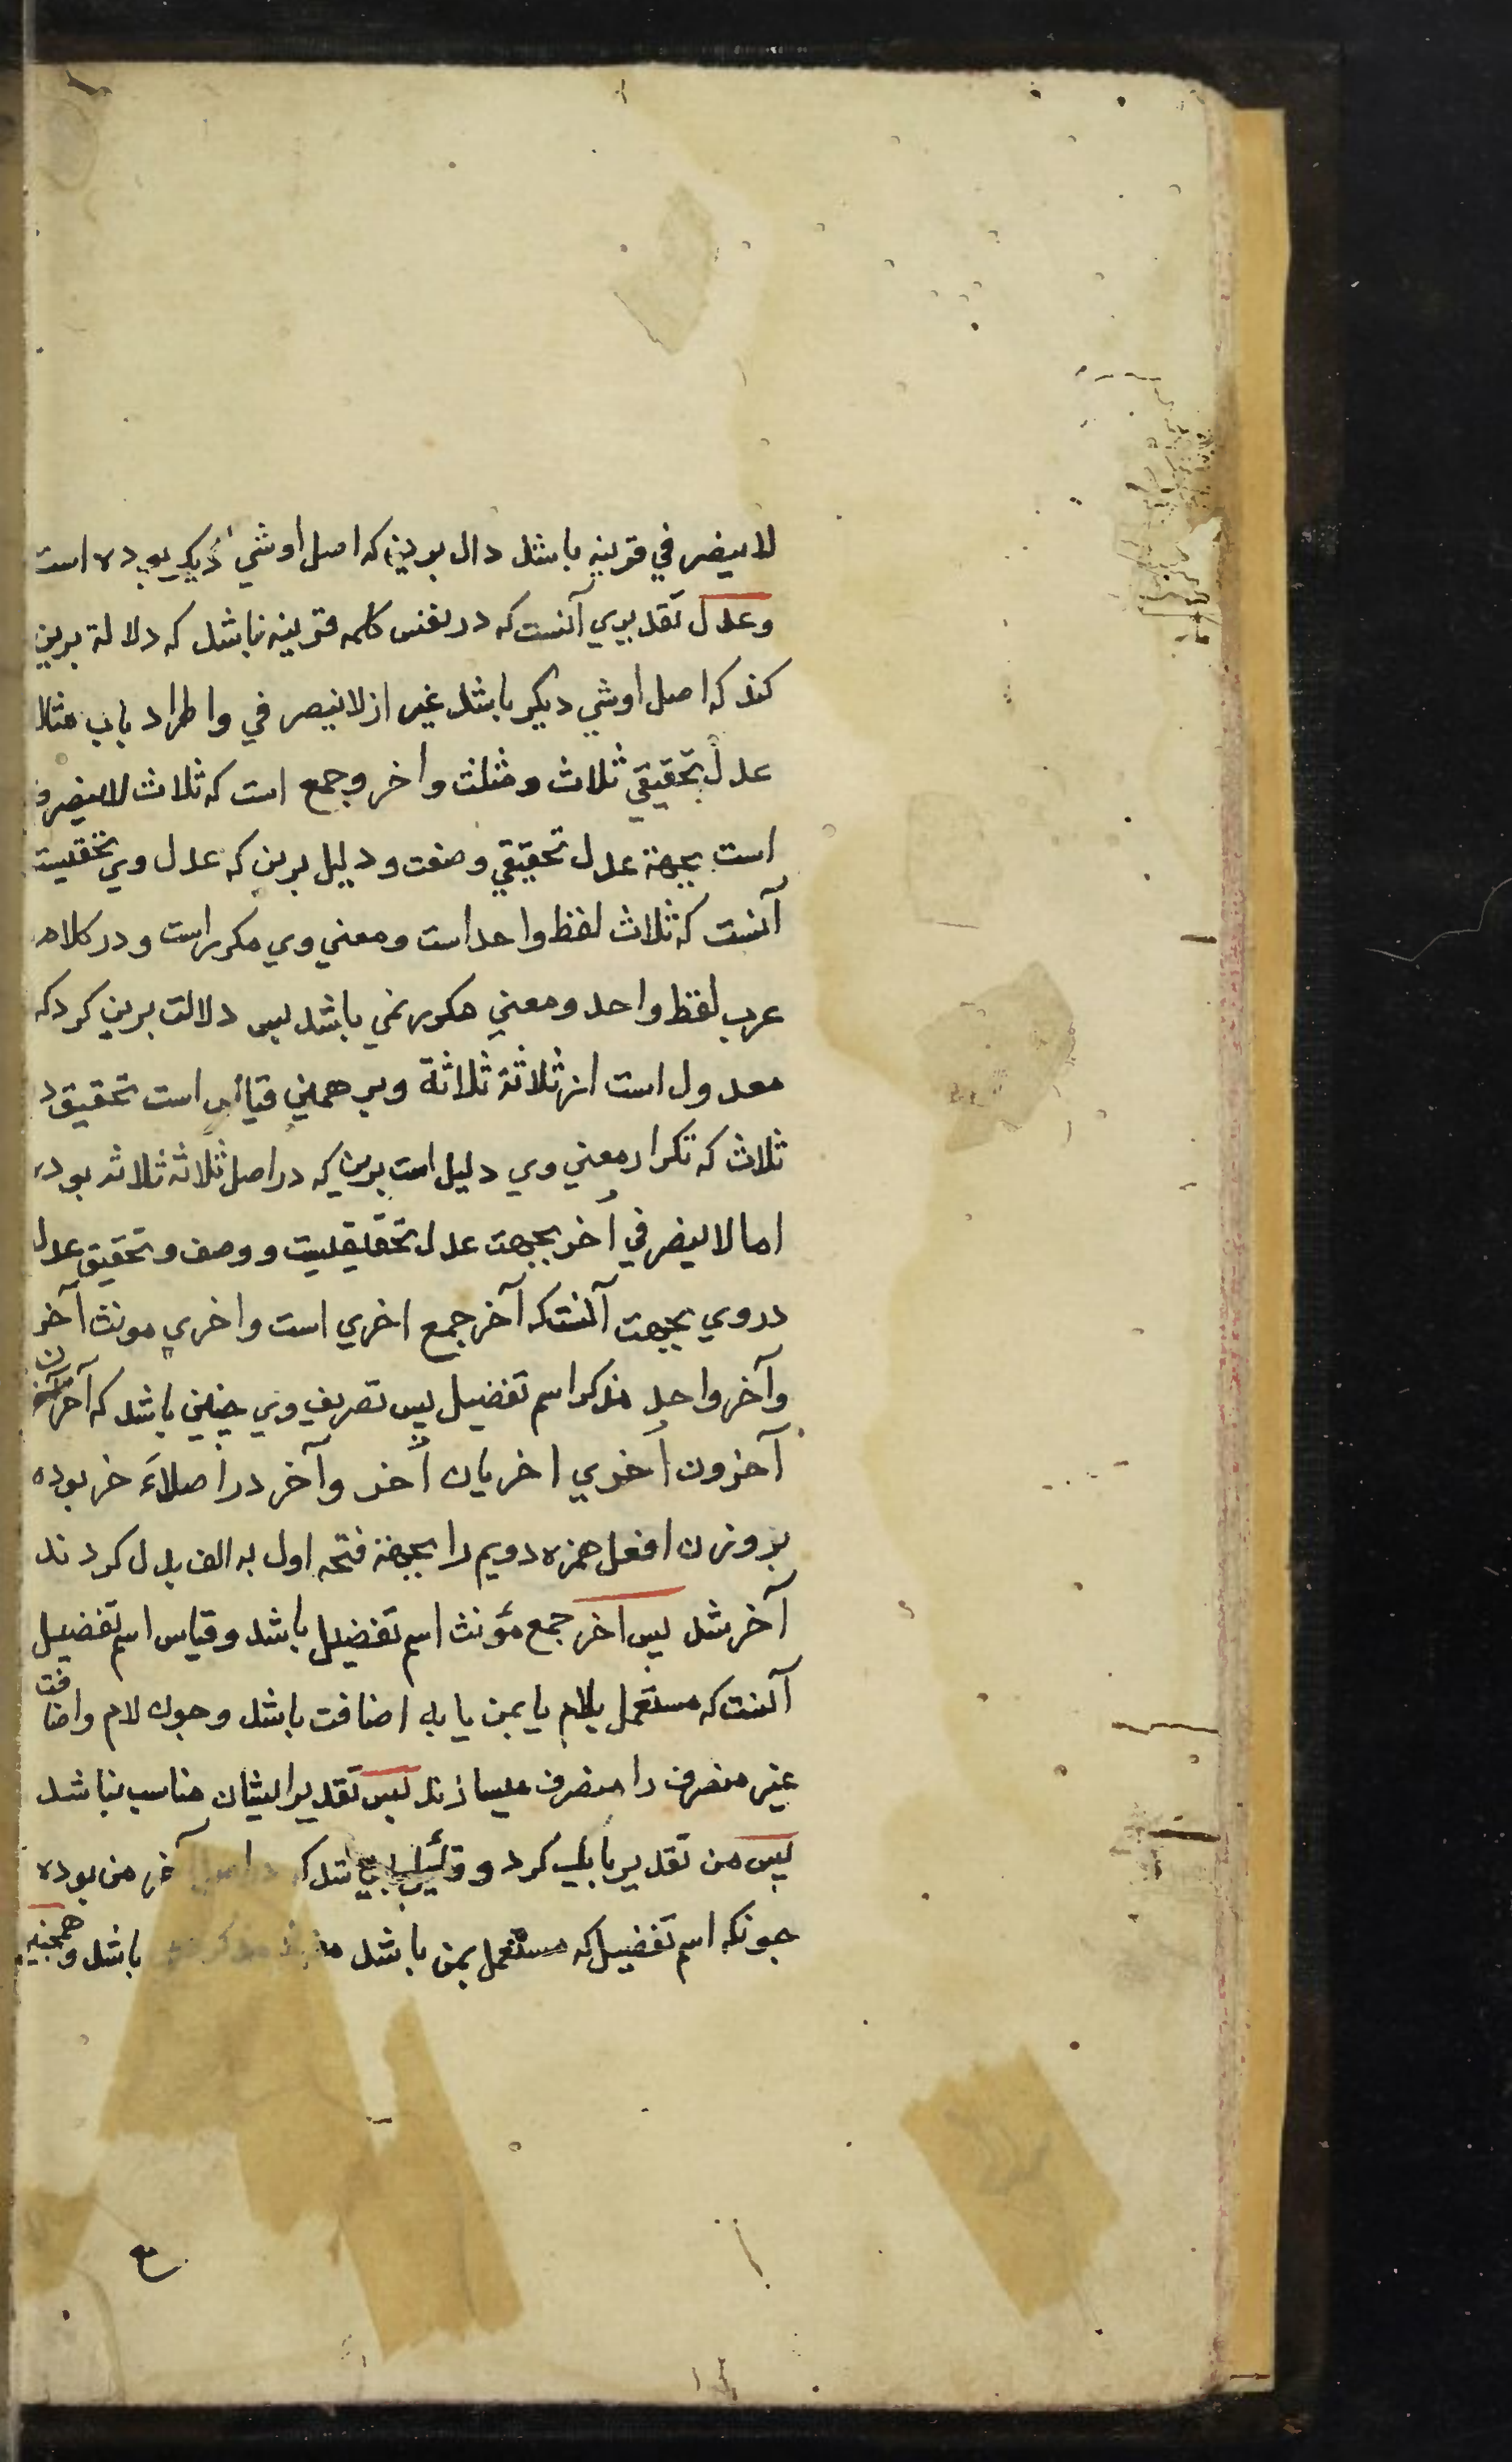 لاینصرفی قرینه باشد دال برین که اصل او شی دیکر بوده است
وعدل تقدیری آنست که در نفس کلمه قرینه نباشد که دلالة برین
کند که اصل او شی دیکر باشد غیر از لاینصرفی واطراد باب مثلا
عدل تحقیقی ثلاث ومثلث واخر وجمع است که ثلاث لاینصرف
است بجهة عدل تحقیقی وصفت ودلیل برین که عدل وی تحقیقیست
آنست که ثلاث لفظ واحد است ومعنی وی مکرر است ودر کلام
عرب لفظ واحد ومعنی مکرر نمی باشد پس دلالت برین کرد که
معدول است از ثلاثة ثلاثة وبر همین قیاس است تحقیق در
ثلاث که تکرار معنی وی دلیل است برین که در اصل ثلاثه ثلاثه بوده
اما لاینصرفی اُخر بجهت عدل تحقیقیست ووصف وتحقیق عدل
در وی بجهت آنست که آخر جمع اخری است واخری مونث آخر
وآخر واحد مذکر اسم تفضیل پس تصریف وی چنین باشد که آخر آخران
آخرون اُخری اخریان اُخر وآخر در اصل أَءخر بوده
بر وزن افعل همزه دویم را بجهة فتحه اول به الف بدل کردند
آخر شد پس اخر جمع مؤنث اسم تفضیل باشد وقیاس اسم تفضیل
آنست که مستعمل بلام یا بمن یا به اضافت باشد وچون لام واضافت
غیر منصرف را منصرف میسازند پس تقدیر ایشان مناسب نباشد
پس من تقدیر باید کرد و شد که در اصل آخر من بوده
چونکه اسم تفضیل که مستعمل بمن باشد باشد وهمچنین